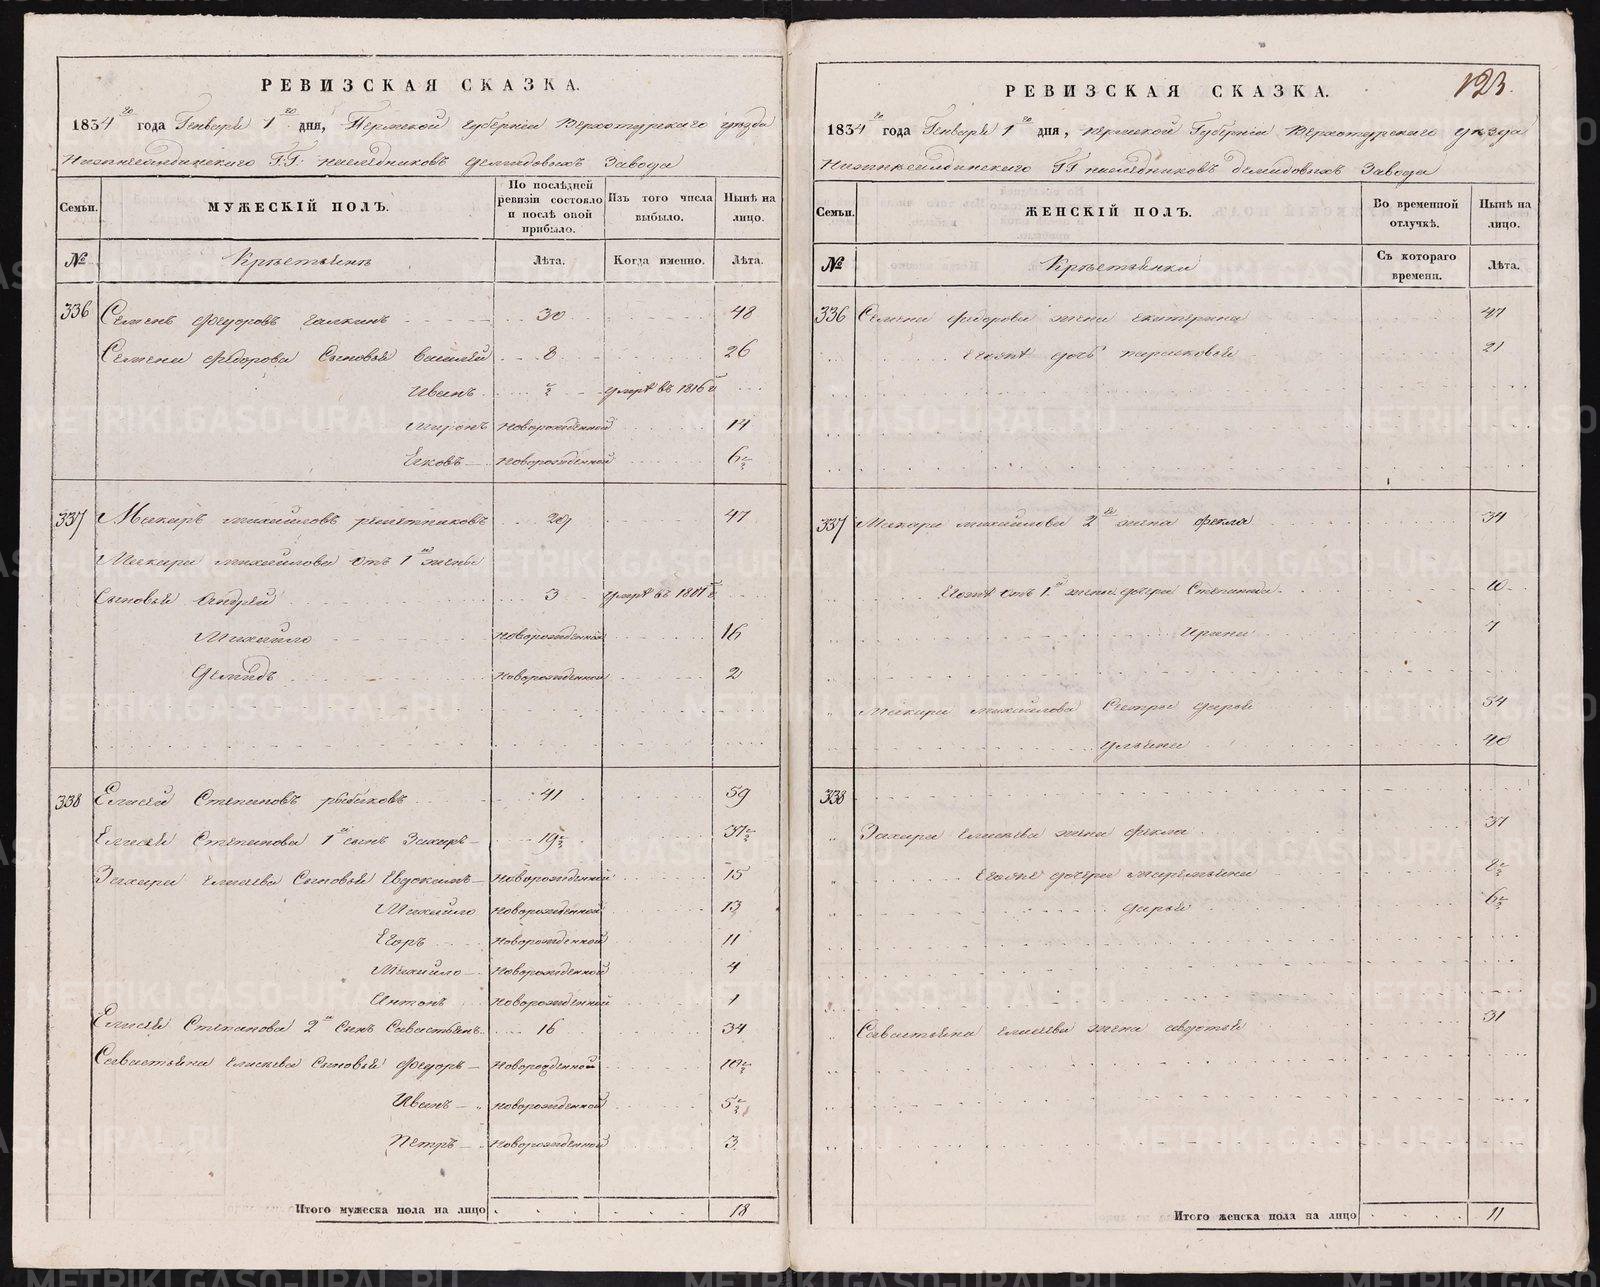 РЕВИЗСКАЯ СКАЗКА.
1834го года Генваря 1го дня, Пермской Губерніи Верхотурскаго уезда
Г.Г. наследниковъ Демидовыхъ Завода
Семьи.
МУЖЕСКІЙ ПОЛЪ.
По послѣдней ревизіи состояло и послѣ оной прибыло.
Изъ того числа выбыло.
Нынѣ на лицо.
№
Крестьянъ
Лѣта.
Когда именно.
Лѣта.
336 Семенъ Федоровъ Галкинъ 30 48
Семена Федорова Сыновья Василей 8 26
Иванъ умре въ 1816
Миронъ новорожденной 14
Яковъ новорожденной 6½
337 Макаръ Михайловъ Решетниковъ 29 47
Макара Михайлова отъ 1й жены
Сыновья Андрей 3 умре въ
Михайло новорожденной 16
Демидъ новорожденной 2
338 Елисей Степановъ Рыбаковъ 41 59
Елисея Степанова 1й сынъ Захаръ 19½ 37½
Захара Елисеева Сыновья Евдокимъ новорожденной 15
Михайло новорожденной 13
Егоръ новорожденной 11
Михайло новорожденной 4
Антонъ новорожденной 1
Елисея Степанова 2й Сынъ Савастьянъ 16 34
Савастьяна Елисеева Сыновья Федоръ новорожденной 10½
Иванъ новорожденной 5½
Петръ новорожденной 3
Итого мужеска пола на лицо 18
123.
РЕВИЗСКАЯ СКАЗКА.
1834го года Генваря 1го дня, Пермской Губерніи Верхотурскаго уезда
ГГ наследниковъ Демидовыхъ Завода
Семьи.
ЖЕНСКІЙ ПОЛЪ.
Во временной отлучкѣ.
Нынѣ на лицо.
№
Крестьянки
Съ котораго времени.
Лѣта.
336 Семена Федорова жена Екатерина 47
Егожъ дочь Парасковья 21
337 Макара Михайлова 2я жена Фекла 34
Егожъ отъ 1й жены дочери Степанида 10
Ирина 7
Макара Михайлова Сестры Дарья 54
Ульяна 40
338
Захара Елисеева жена Фекла 37
Егожъ дочери Маремьяна 8½
Дарья 6½
Савастьяна Елисеева жена Авдотья 31
Итого женска пола на лицо 11
METRIKI.GASO-URAL.RU